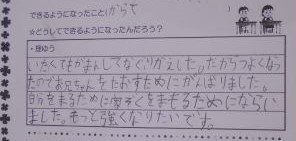 できるようになったこと(からて
☆どうしてできるようになったんだろう?
・理ゆう
いたくてもがまんしてなぐりかえした。だからつよくなっ
たのでお兄ちゃんをたおすためにがんばりました。
自分を守るために家ぞくをまもるためにならい
ました。もっと強くなりたいです。